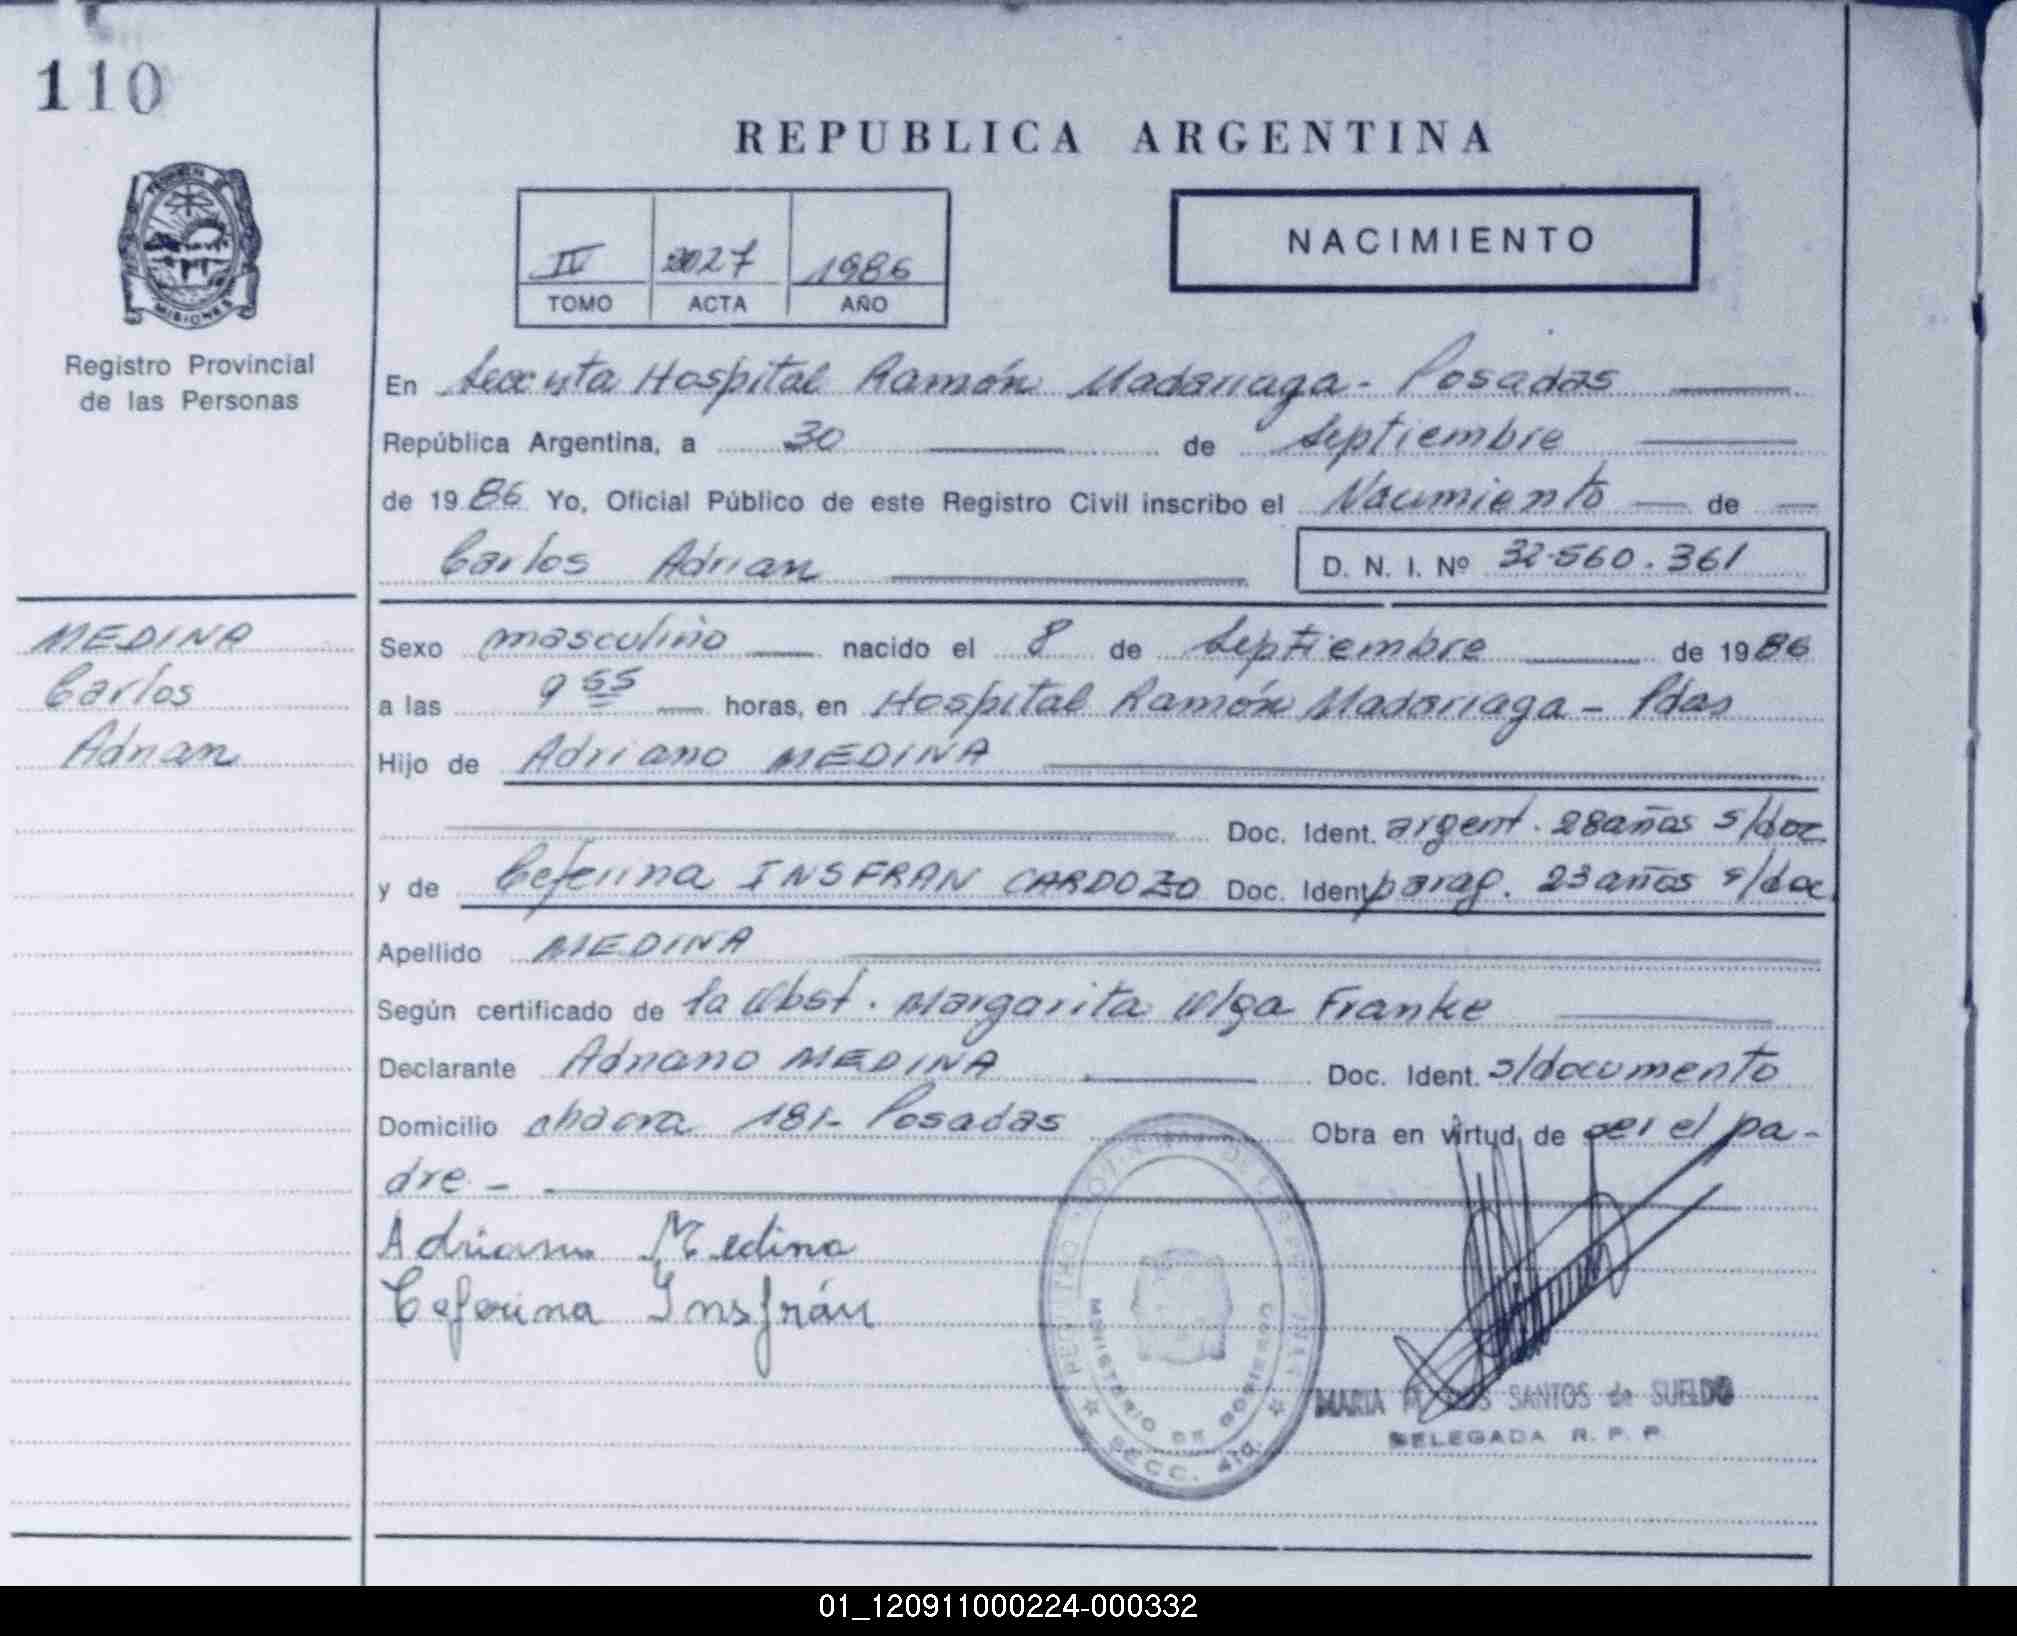 110
REPUBLICA ARGENTINA
NACIMIENTO
IV 2027 1986
TOMO ACTA AÑO
MISIONES
Registro Provincial
de las Personas
En Hospital Ramón Madariaga - Posadas
República Argentina, a 30 de Septiembre
de 1986 Yo, Oficial Público de este Registro Civil inscribo el Nacimiento de
Carlos Adrian D. N. I. Nº 32.560.361
MEDINA
Carlos
Adrian
Sexo masculino nacido el 8 de Septiembre de 1986
a las 9 55 horas, en Hospital Ramón Madariaga - Pdas
Hijo de Adriano MEDINA
Doc. Ident. argent. 28 años s/doc
y de Ceferina INSFRAN CARDOZO Doc. Ident. parag. 23 años s/doc
Apellido MEDINA
Según certificado de la Obst. Margarita Olga Franke
Declarante Adriano MEDINA Doc. Ident. s/documento
Domicilio chacra 181- Posadas Obra en virtud de ser el pa-
dre -
Adriano Medina
Ceferina Insfrán
MINISTERIO DE GOBIERNO
SECC. 4ta.
MARIA SANTOS de SUELDO
DELEGADA R. P. P.
01_120911000224-000332